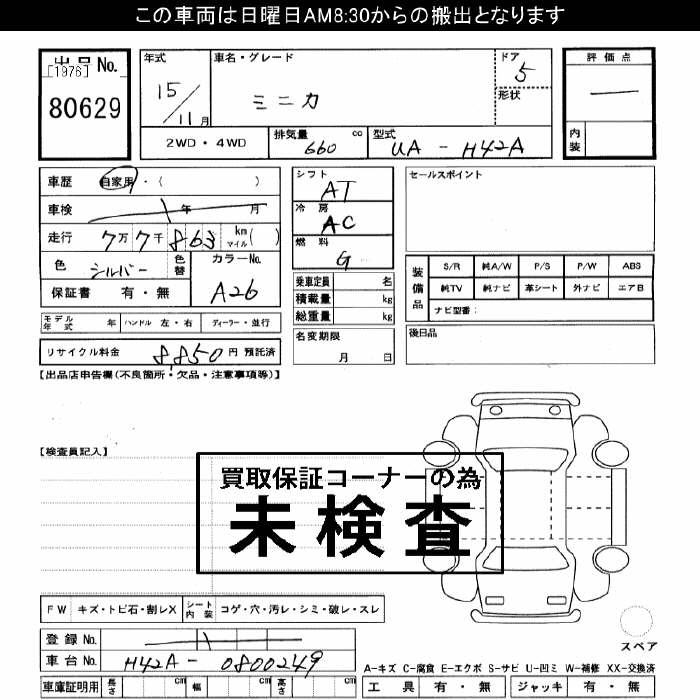 この車両は日曜日AM8:30からの搬出となります
出品 No.
[1976]
80629
年式
15/11月
車名・グレード
ミニカ
ドア
5
形状
評価点
—
内装
2WD・4WD
排気量 cc
660
型式
UA - H42A
車歴 自家用・( )
車検 年 月
走行 7万7千863 km マイル( )
色 シルバー 色替
カラーNo.
A26
保証書 有・無
シフト
AT
冷房
AC
燃料
G
乗車定員 名
積載量 kg
総重量 kg
セールスポイント
装備品
S/R 純A/W P/S P/W ABS
純TV 純ナビ 革シート 外ナビ エアB
ナビ型番:
モデル年式 年 ハンドル 左・右 ディーラー・並行
名変期限
月 日
後日品
リサイクル料金 8,850円 預託済
【出品店申告欄(不良箇所・欠品・注意事項等)】
【検査員記入】
買取保証コーナーの為
未検査
FW キズ・トビ石・割レX シート内装 コゲ・穴・汚レ・シミ・破レ・スレ
登録 No.
車台 No. H42A - 0800249
スペア
A-キズ C-腐食 E-エクボ S-サビ U-凹ミ W-補修 XX-交換済
車庫証明用 長さ cm 幅 cm 高さ cm
工具 有・無 ジャッキ 有・無